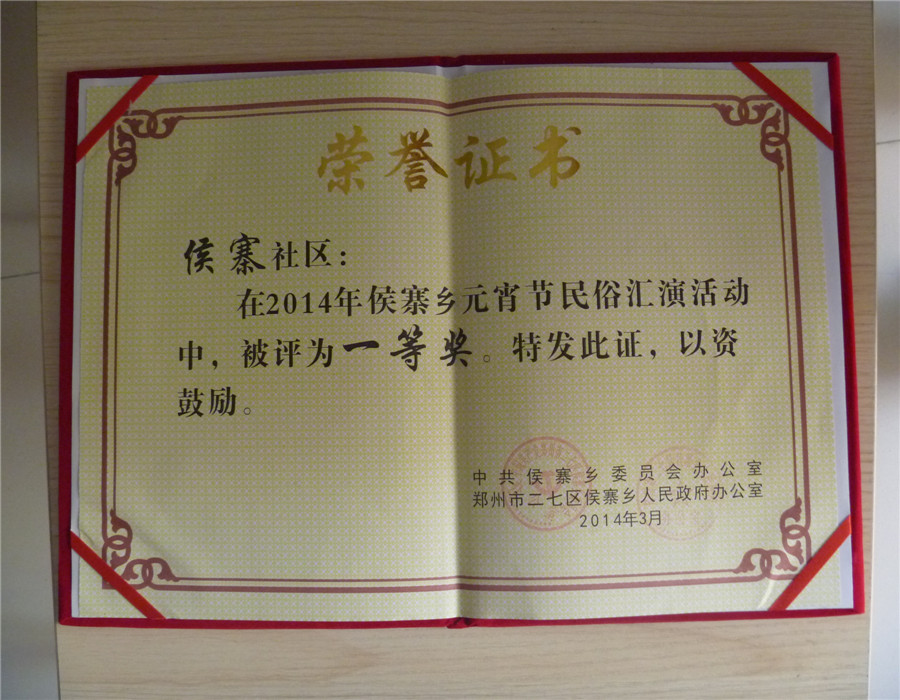 荣誉证书
侯寨社区：
在2014年侯寨乡元宵节民俗汇演活动
中，被评为一等奖。特发此证，以资
鼓励。
中共侯寨乡委员会办公室
郑州市二七区侯寨乡人民政府办公室
2014年3月